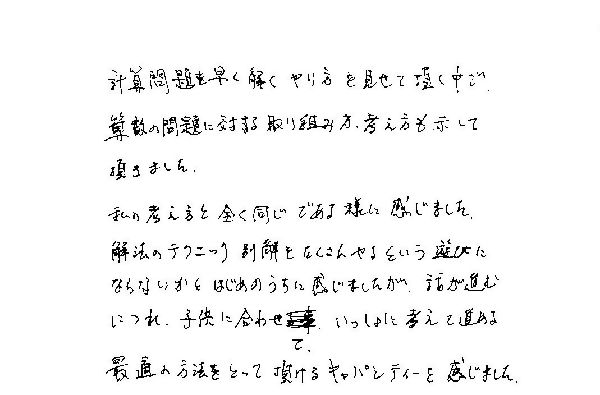 計算問題を早く解くやり方を見せて頂く中で、
算数の問題に対する取り組み方、考え方も示して
頂きました。
私の考え方と全く同じである様に感じました。
解法のテクニック別解をたくさんやるという遊びに
ならないかとはじめのうちに感じましたが、話が進む
につれ、子供に合わせて、いっしょに考えて進める
最適の方法をとって頂けるキャパシティーを感じました。